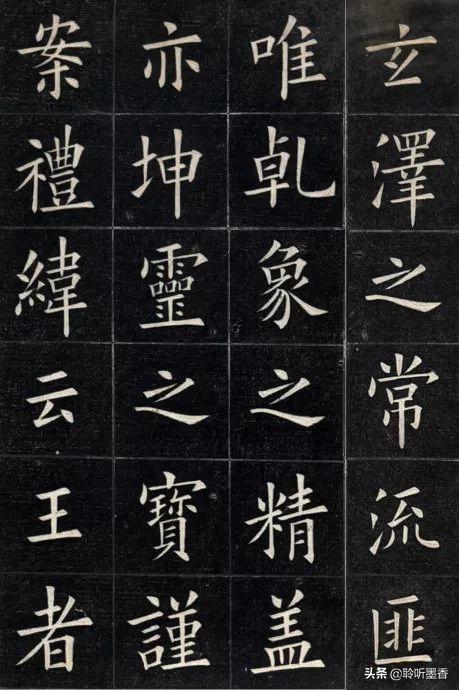 玄澤之常流匪
唯乹象之精盖
亦坤靈之寶謹
案禮緯云王者
头条 @聆听墨香